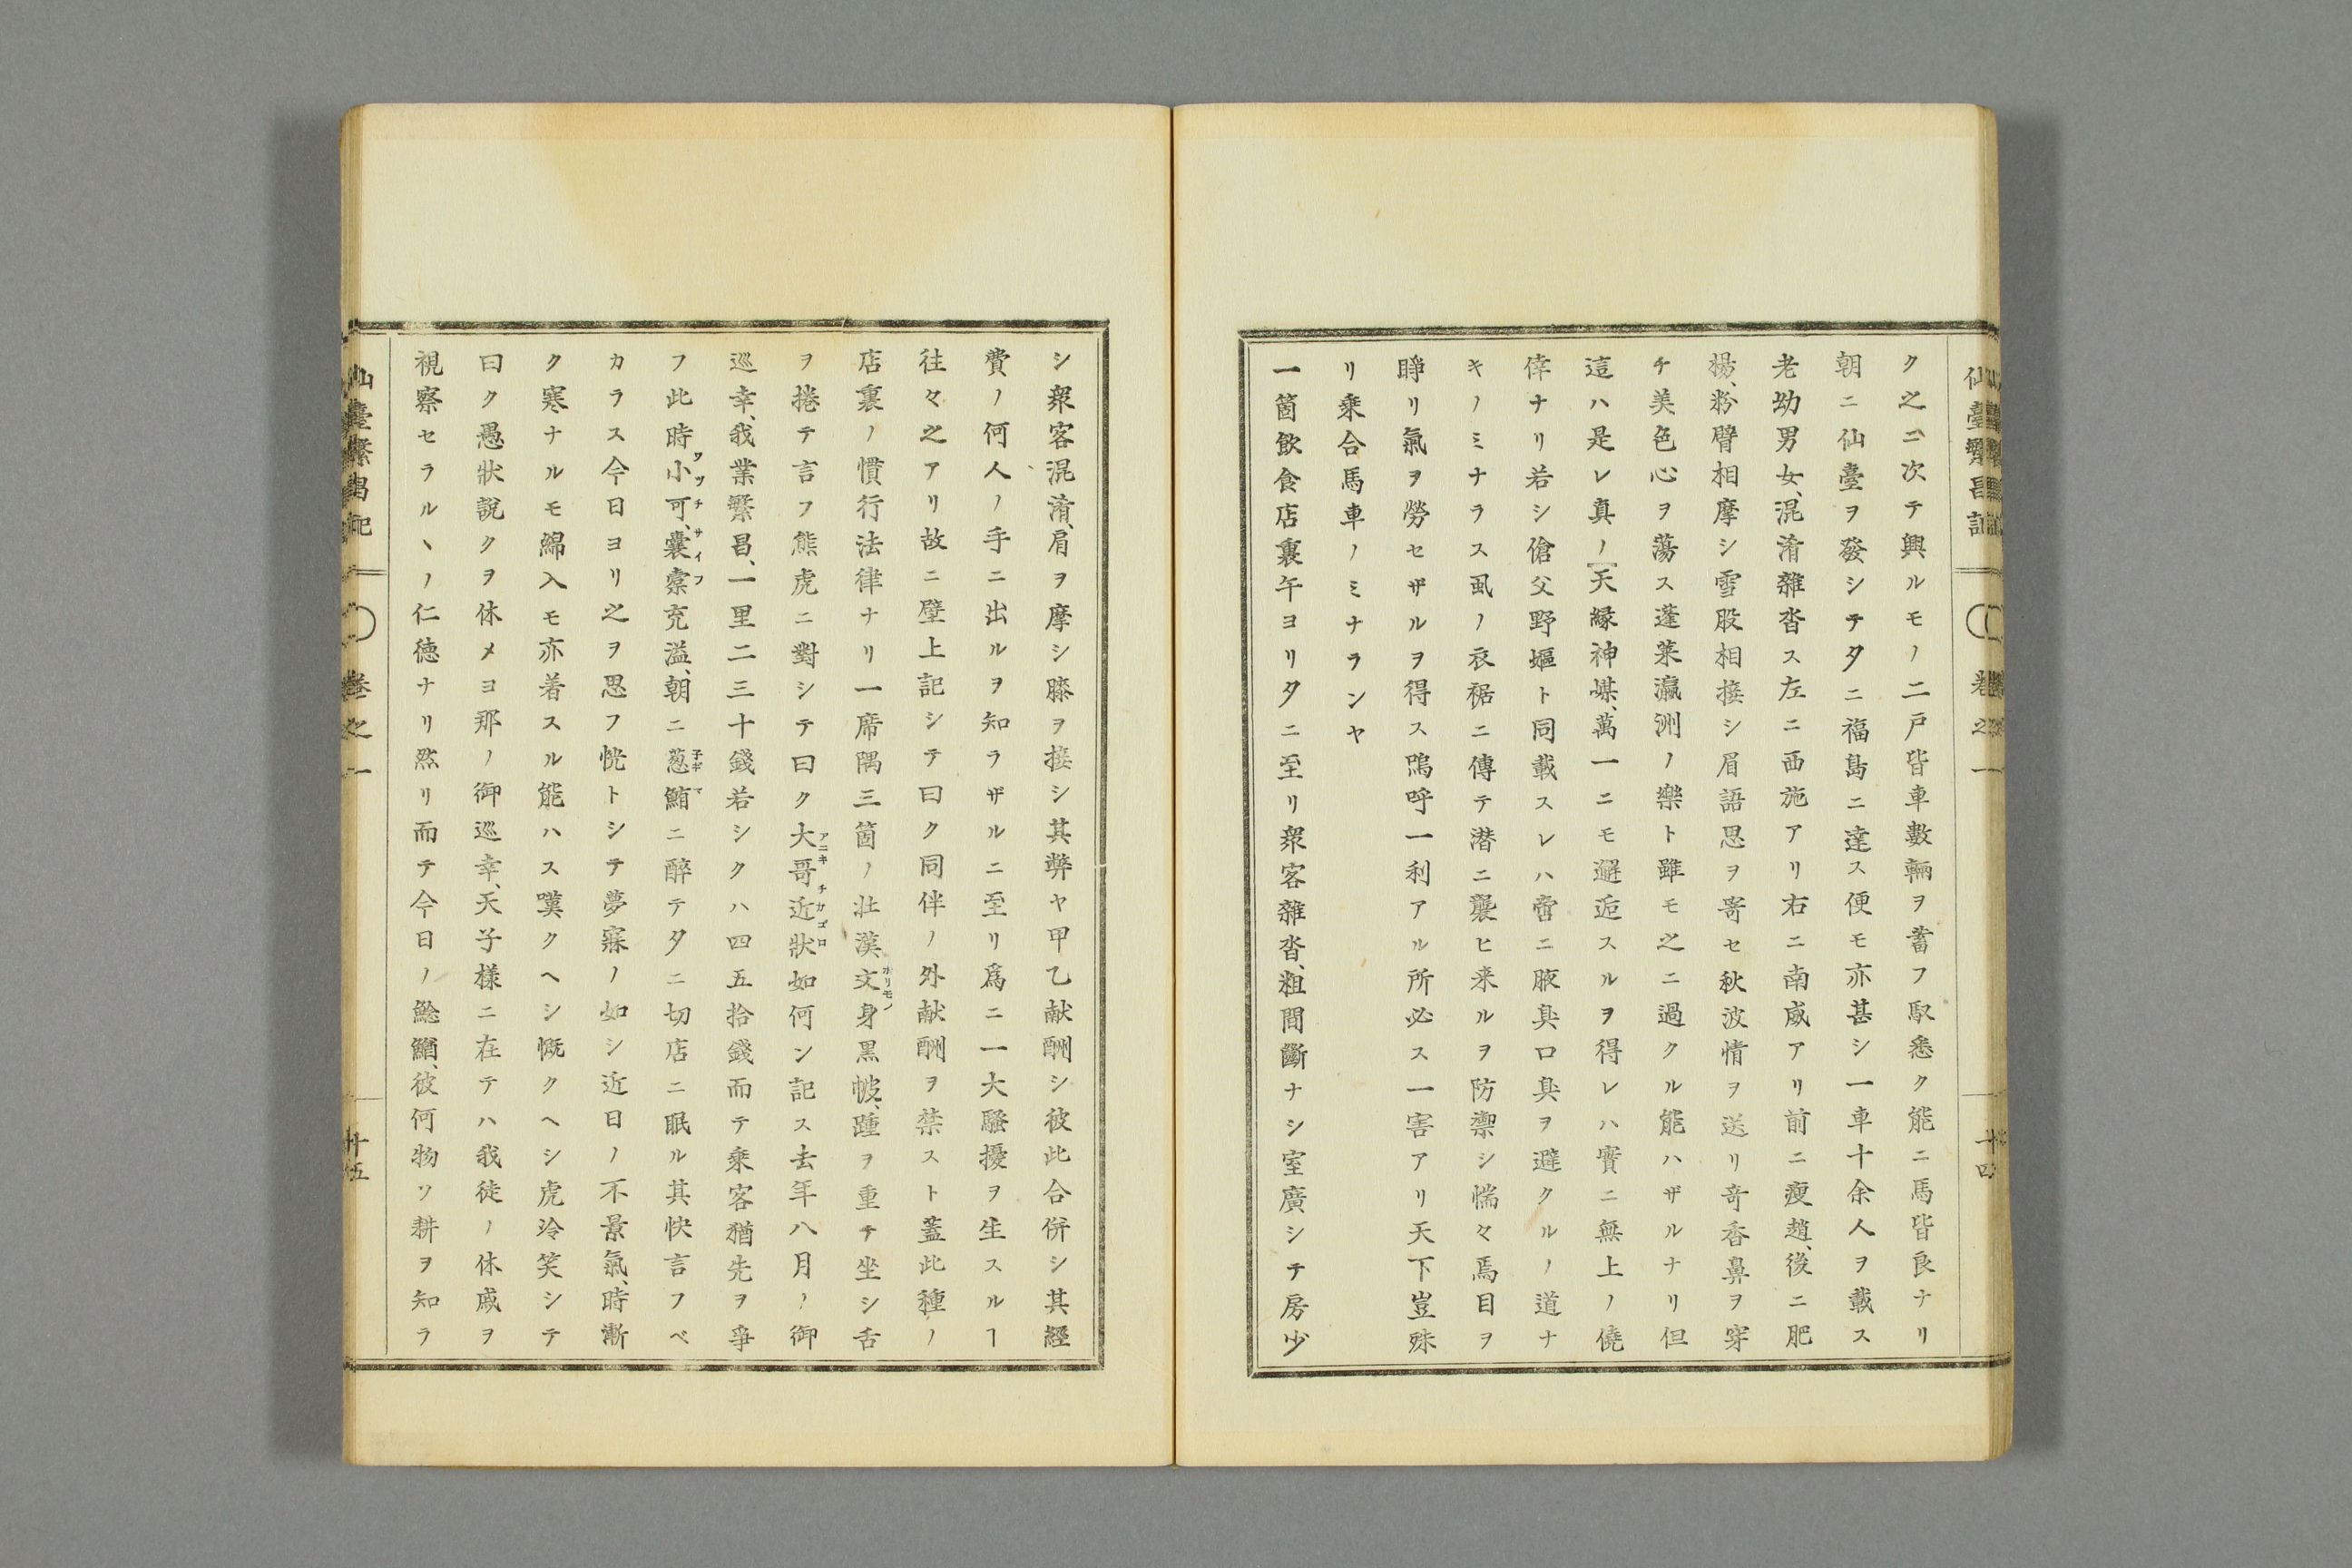 仙臺繁昌記
卷之一
十四
ク之ニ次テ興ルモノ二戸皆車數輛ヲ蓄フ馭悉ク能ニ馬皆良ナリ
朝ニ仙臺ヲ發シテ夕ニ福島ニ達ス便モ亦甚シ一車十余人ヲ載ス
老幼男女、混淆雜沓ス左ニ西施アリ右ニ南威アリ前ニ瘦趙、後ニ肥
楊、粉臂相摩シ雪股相接シ眉語思ヲ寄セ秋波情ヲ送リ奇香鼻ヲ穿
チ美色心ヲ蕩ス蓬萊瀛洲ノ樂ト雖モ之ニ過クル能ハザルナリ但
這ハ是レ真ノ天縁神媒、萬一ニモ邂逅スルヲ得レハ實ニ無上ノ僥
倖ナリ若シ傖父野嫗ト同載スレハ啻ニ腋臭口臭ヲ避クルノ道ナ
キノミナラス虱ノ衣裾ニ傳テ潜ニ襲ヒ来ルヲ防禦シ惴々焉目ヲ
睜リ氣ヲ勞セザルヲ得ス嗚呼一利アル所必ス一害アリ天下豈殊
リ乘合馬車ノミナランヤ
一箇飲食店裏午ヨリ夕ニ至リ衆客雜沓、粗間斷ナシ室廣シテ房少
シ衆客混淆、肩ヲ摩シ膝ヲ接シ其弊ヤ甲乙献酬シ彼此合併シ其經
費ノ何人ノ手ニ出ルヲ知ラザルニ至リ爲ニ一大騷擾ヲ生スルヿ
往々之アリ故ニ壁上記シテ曰ク同伴ノ外献酬ヲ禁スト蓋此種ノ
店裏ノ慣行法律ナリ一席隅三箇ノ壯漢文身黒帔、踵ヲ重テ坐シ舌
ホリモノ
ヲ捲テ言フ熊虎ニ對シテ曰ク大哥近狀如何ン記ス去年八月ノ御
アニキ チカゴロ
巡幸、我業繁昌、一里二三十錢若シクハ四五拾錢而テ乘客猶先ヲ爭
フ此時小可、嚢槖充溢、朝ニ葱鮪ニ醉テ夕ニ切店ニ眠ル其快言フベ
ワッチ サイフ 子ギマ
カラス今日ヨリ之ヲ思フ恍トシテ夢寐ノ如シ近日ノ不景氣、時漸
ク寒ナルモ綿入モ亦着スル能ハス嘆クヘシ慨クヘシ虎冷笑シテ
曰ク愚狀說クヲ休メヨ那ノ御巡幸、天子様ニ在テハ我徒ノ休戚ヲ
視察セラルヽノ仁徳ナリ然リ而テ今日ノ鯰鰌、彼何物ソ耕ヲ知ラ
仙臺繁昌記
卷之一
十五